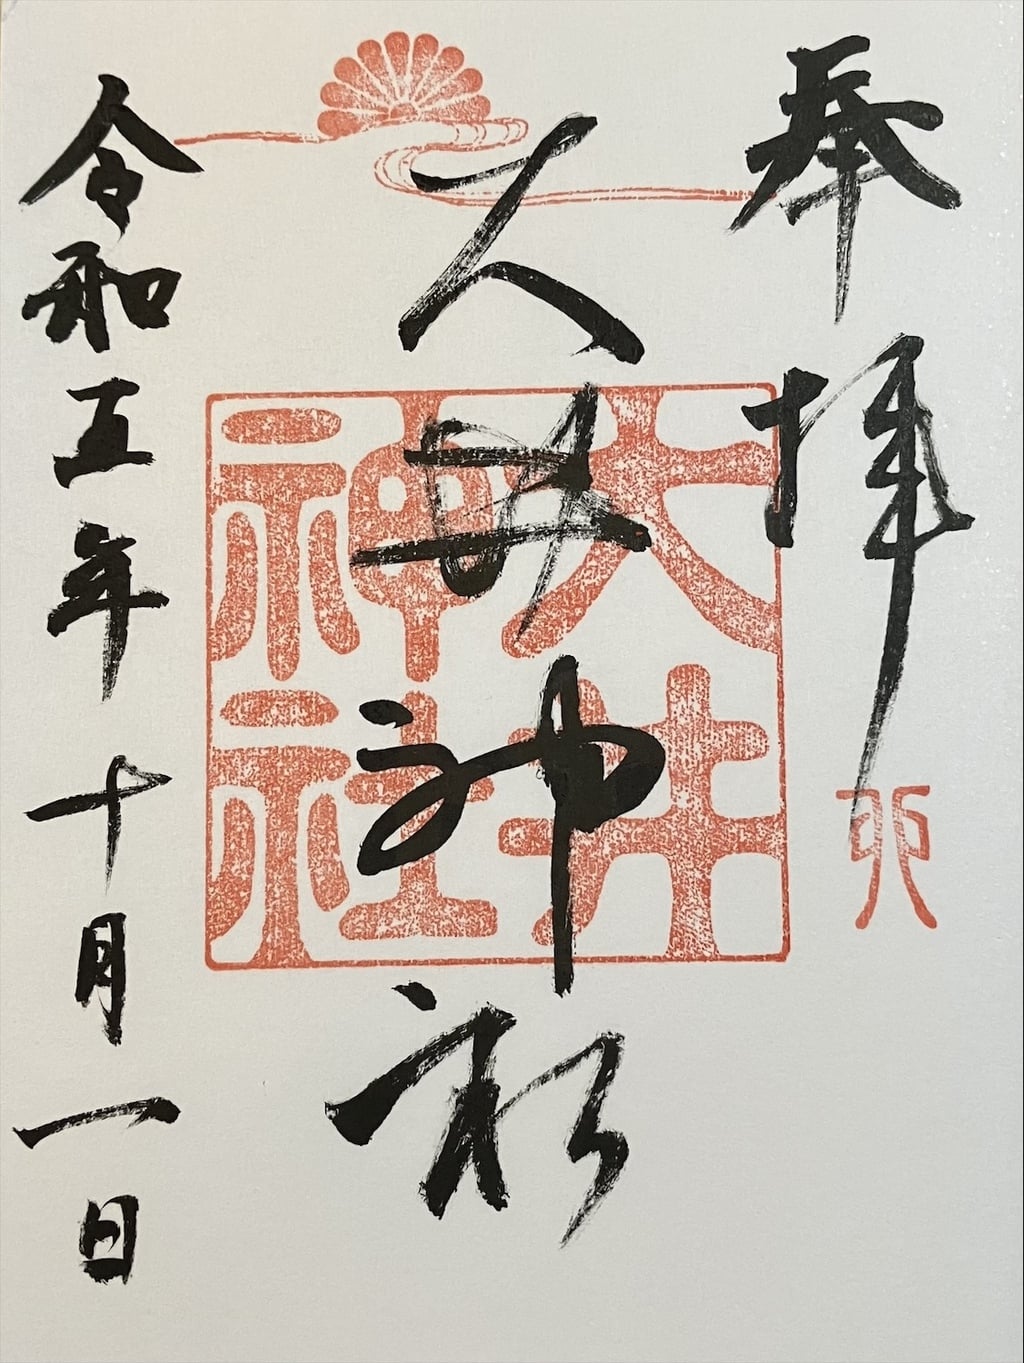 奉拝
卯
大井神社
大井
神社
令和五年十月一日